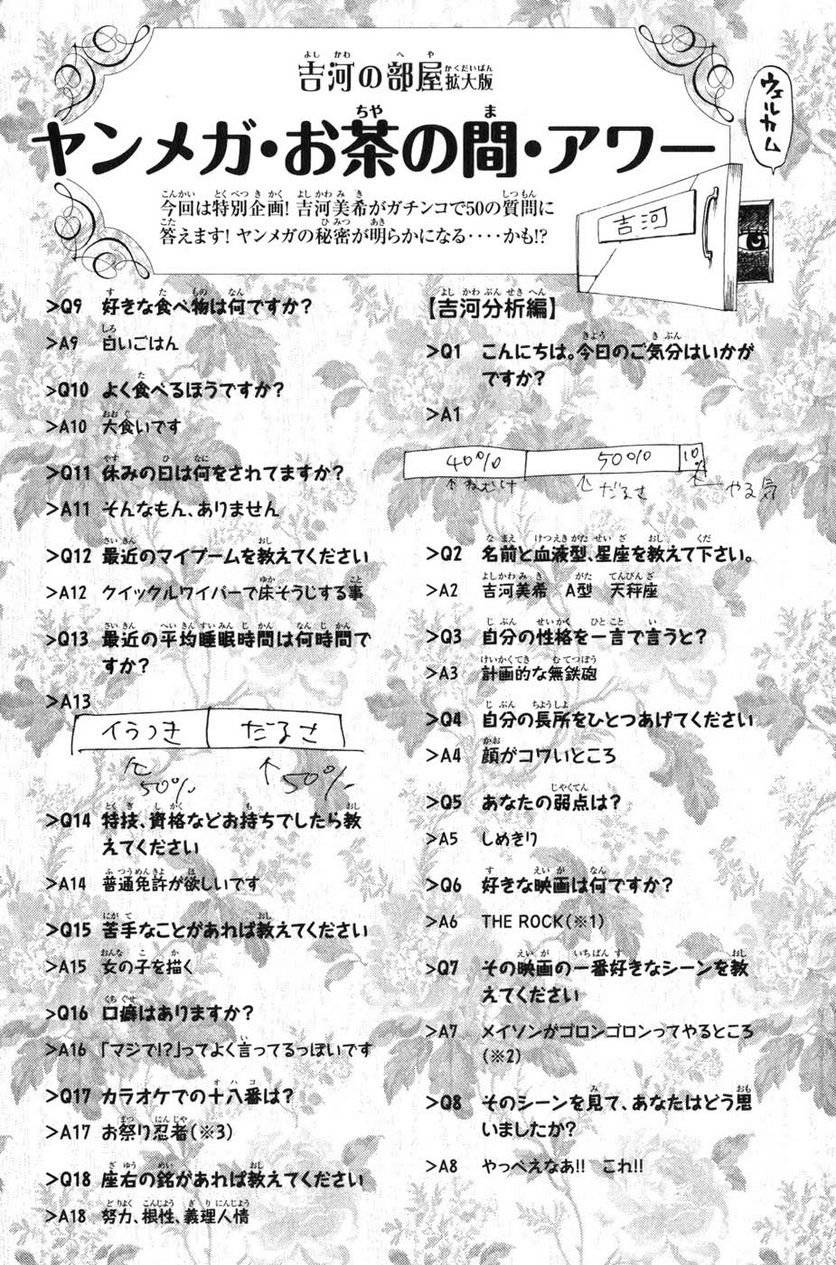 吉河の部屋拡大版
ヤンメガ・お茶の間・アワー
今回は特別企画! 吉河美希がガチンコで50の質問に
答えます! ヤンメガの秘密が明らかになる‥‥かも!?
ウェルカム
吉河
【吉河分析編】
>Q1 こんにちは。今日のご気分はいかが
ですか?
>A1
40% 50% 10%
↑ねむけ ↑だるさ ↑やる気
>Q2 名前と血液型、星座を教えて下さい。
>A2 吉河美希 A型 天秤座
>Q3 自分の性格を一言で言うと?
>A3 計画的な無鉄砲
>Q4 自分の長所をひとつあげてください
>A4 顔がコワいところ
>Q5 あなたの弱点は?
>A5 しめきり
>Q6 好きな映画は何ですか?
>A6 THE ROCK(※1)
>Q7 その映画の一番好きなシーンを教
えてください
>A7 メイソンがゴロンゴロンってやるところ
(※2)
>Q8 そのシーンを見て、あなたはどう思
いましたか?
>A8 やっべえなあ!! これ!!
>Q9 好きな食べ物は何ですか?
>A9 白いごはん
>Q10 よく食べるほうですか?
>A10 大食いです
>Q11 休みの日は何をされてますか?
>A11 そんなもん、ありません
>Q12 最近のマイブームを教えてください
>A12 クイックルワイパーで床そうじする事
>Q13 最近の平均睡眠時間は何時間で
すか?
>A13
イラつき だるさ
↑50% ↑50%
>Q14 特技、資格などお持ちでしたら教
えてください
>A14 普通免許が欲しいです
>Q15 苦手なことがあれば教えてください
>A15 女の子を描く
>Q16 口癖はありますか?
>A16 「マジで!?」ってよく言ってるっぽいです
>Q17 カラオケでの十八番は?
>A17 お祭り忍者(※3)
>Q18 座右の銘があれば教えてください
>A18 努力、根性、義理人情